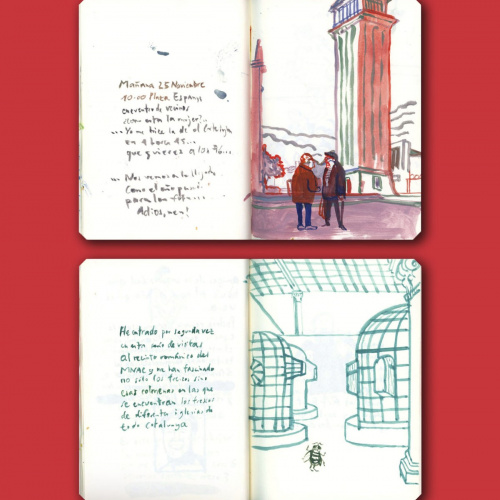 Mañana 25 Noviembre
10:00 Plaza España
encuentro de vecinos
¿cómo está la mujer?..
... Yo me hice la de el
en 1 hora 45...
que quieres a los 76...
... Nos vemos a la
Como el año
para los
Adios, nen!
He entrado por segunda vez
en este año de visitas
al recinto románico del
MNAC y me han fascinado
no sólo los frescos sino
las en las que
se encuentran los frescos
de diferentes iglesias de
toda Catalunya